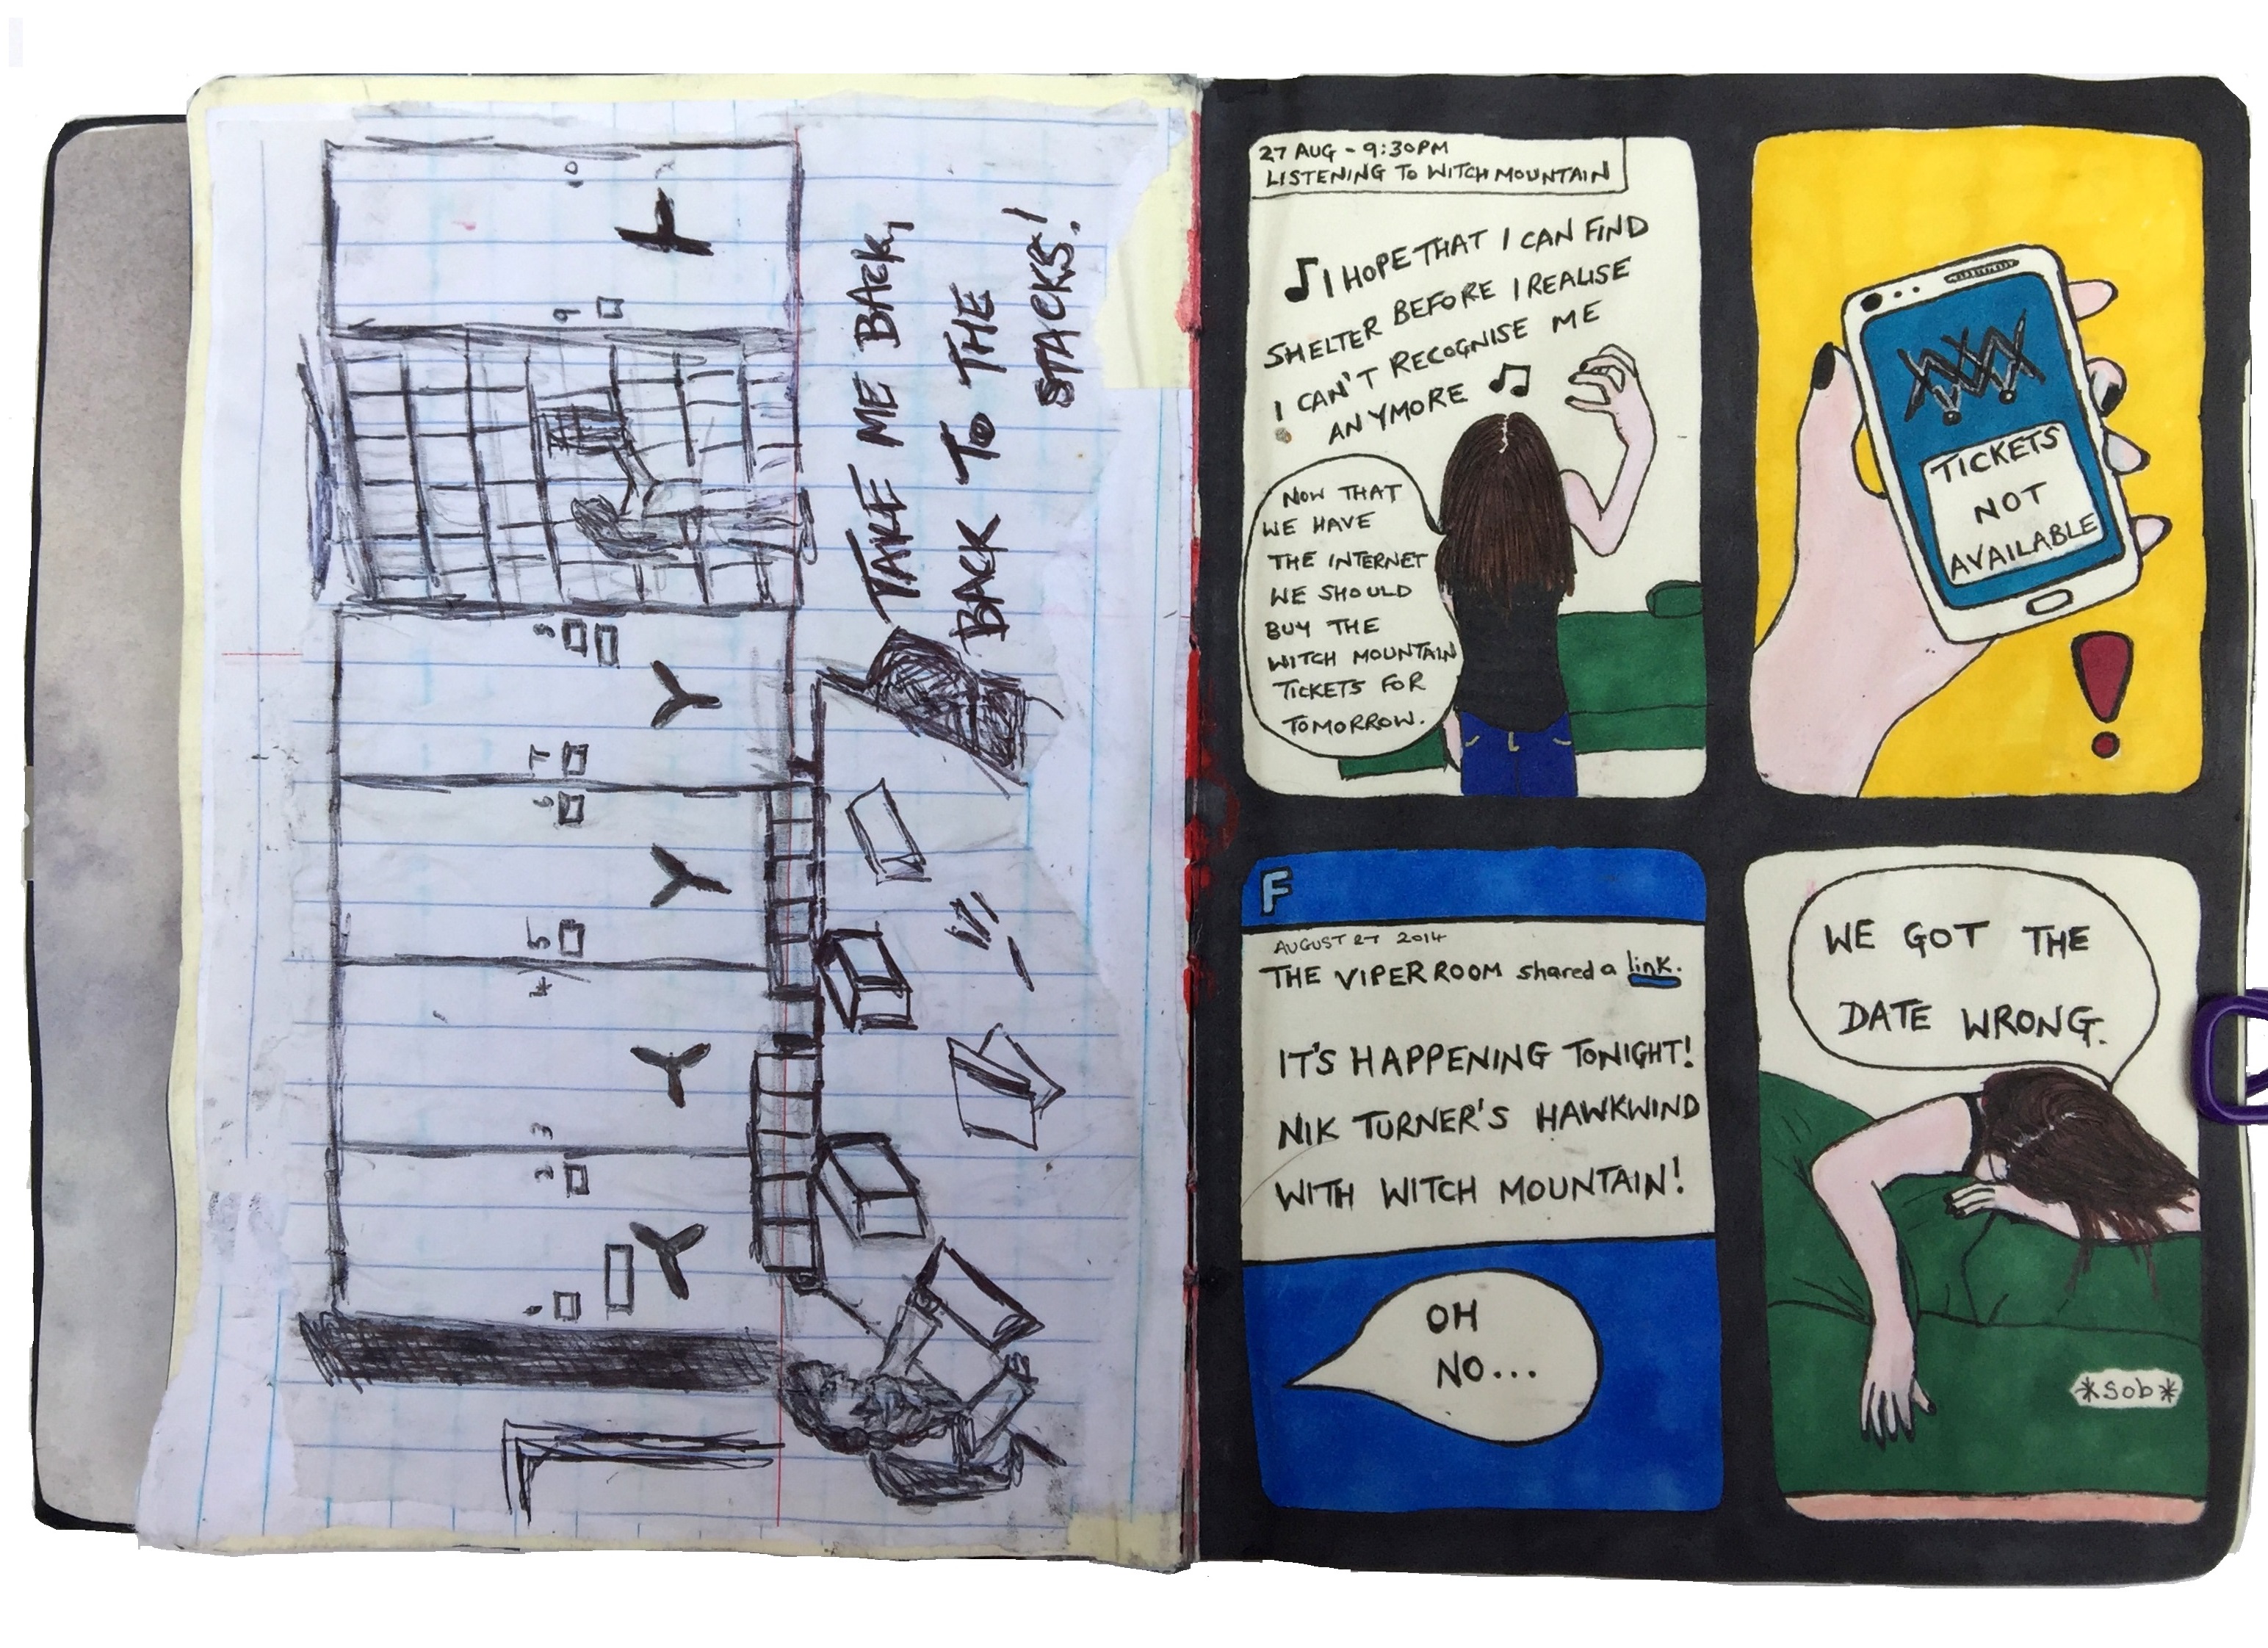 TAKE ME BACK,
BACK TO THE
STACKS!
1
2
3
4
5
6
7
8
9
10
27 AUG - 9:30PM
LISTENING TO WITCH MOUNTAIN
♫ I HOPE THAT I CAN FIND
SHELTER BEFORE I REALISE
I CAN'T RECOGNISE ME
ANYMORE ♫
NOW THAT
WE HAVE
THE INTERNET
WE SHOULD
BUY THE
WITCH MOUNTAIN
TICKETS FOR
TOMORROW.
TICKETS
NOT
AVAILABLE
!
F
AUGUST 27 2014
THE VIPER ROOM shared a link.
IT'S HAPPENING TONIGHT!
NIK TURNER'S HAWKWIND
WITH WITCH MOUNTAIN!
OH
NO...
WE GOT THE
DATE WRONG.
*SOB*